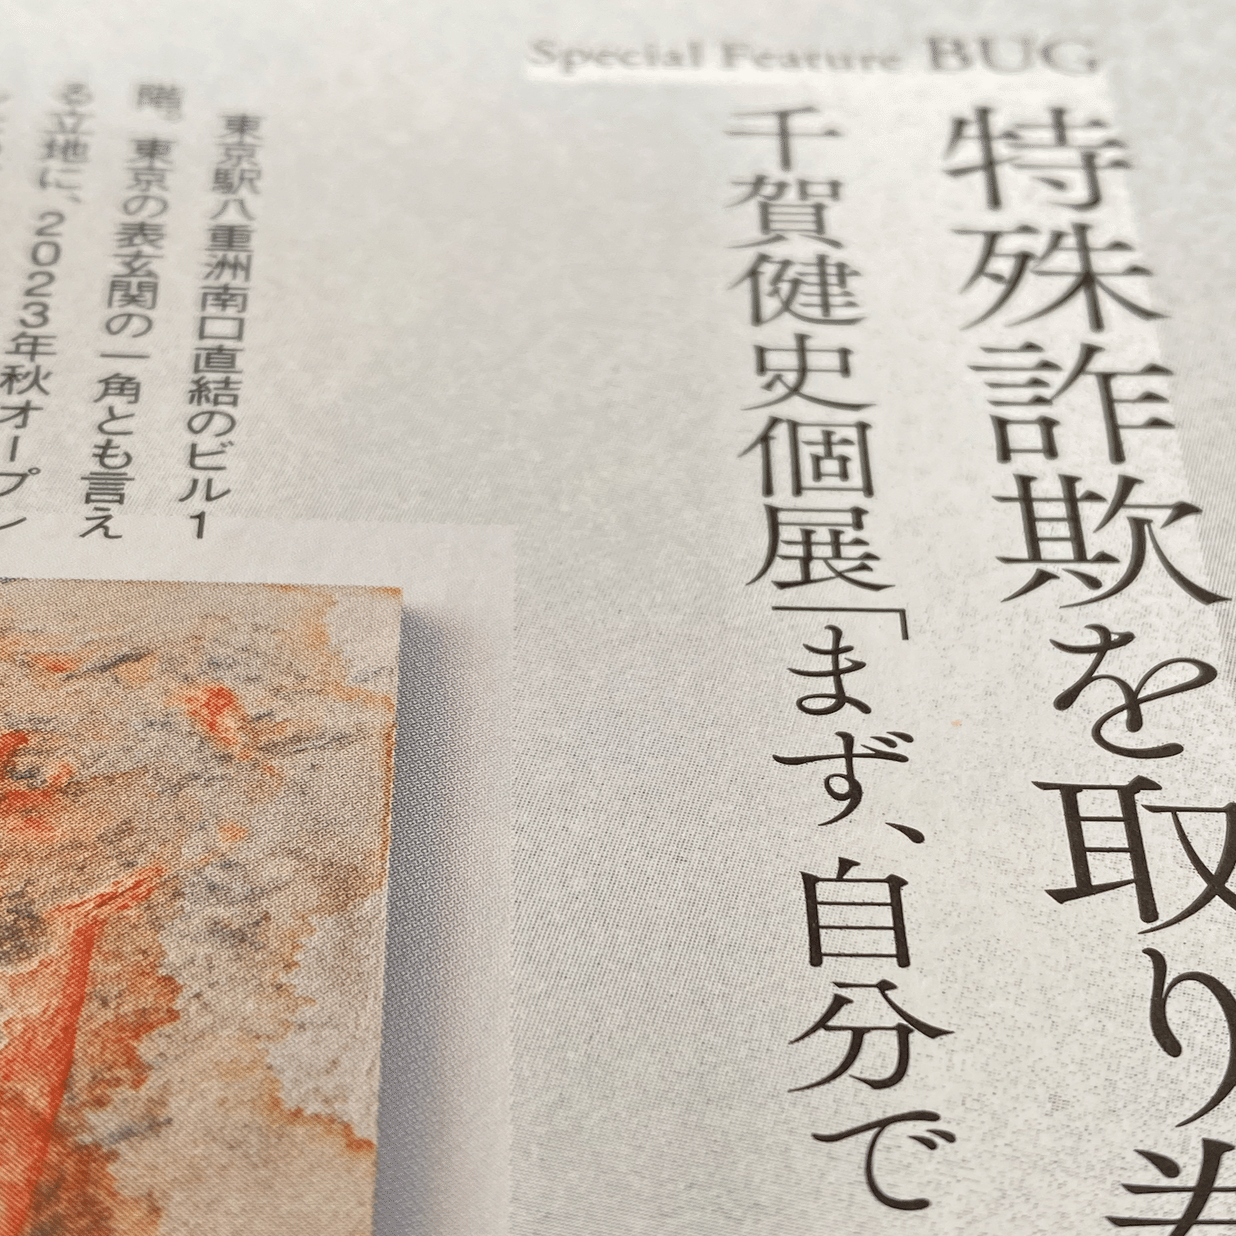 Special Feature BUG
特殊詐欺を取り巻
千賀健史個展「まず、自分で
東京駅八重洲南口直結のビル1
階。東京の表玄関の一角とも言え
る立地に、2023年秋オープン